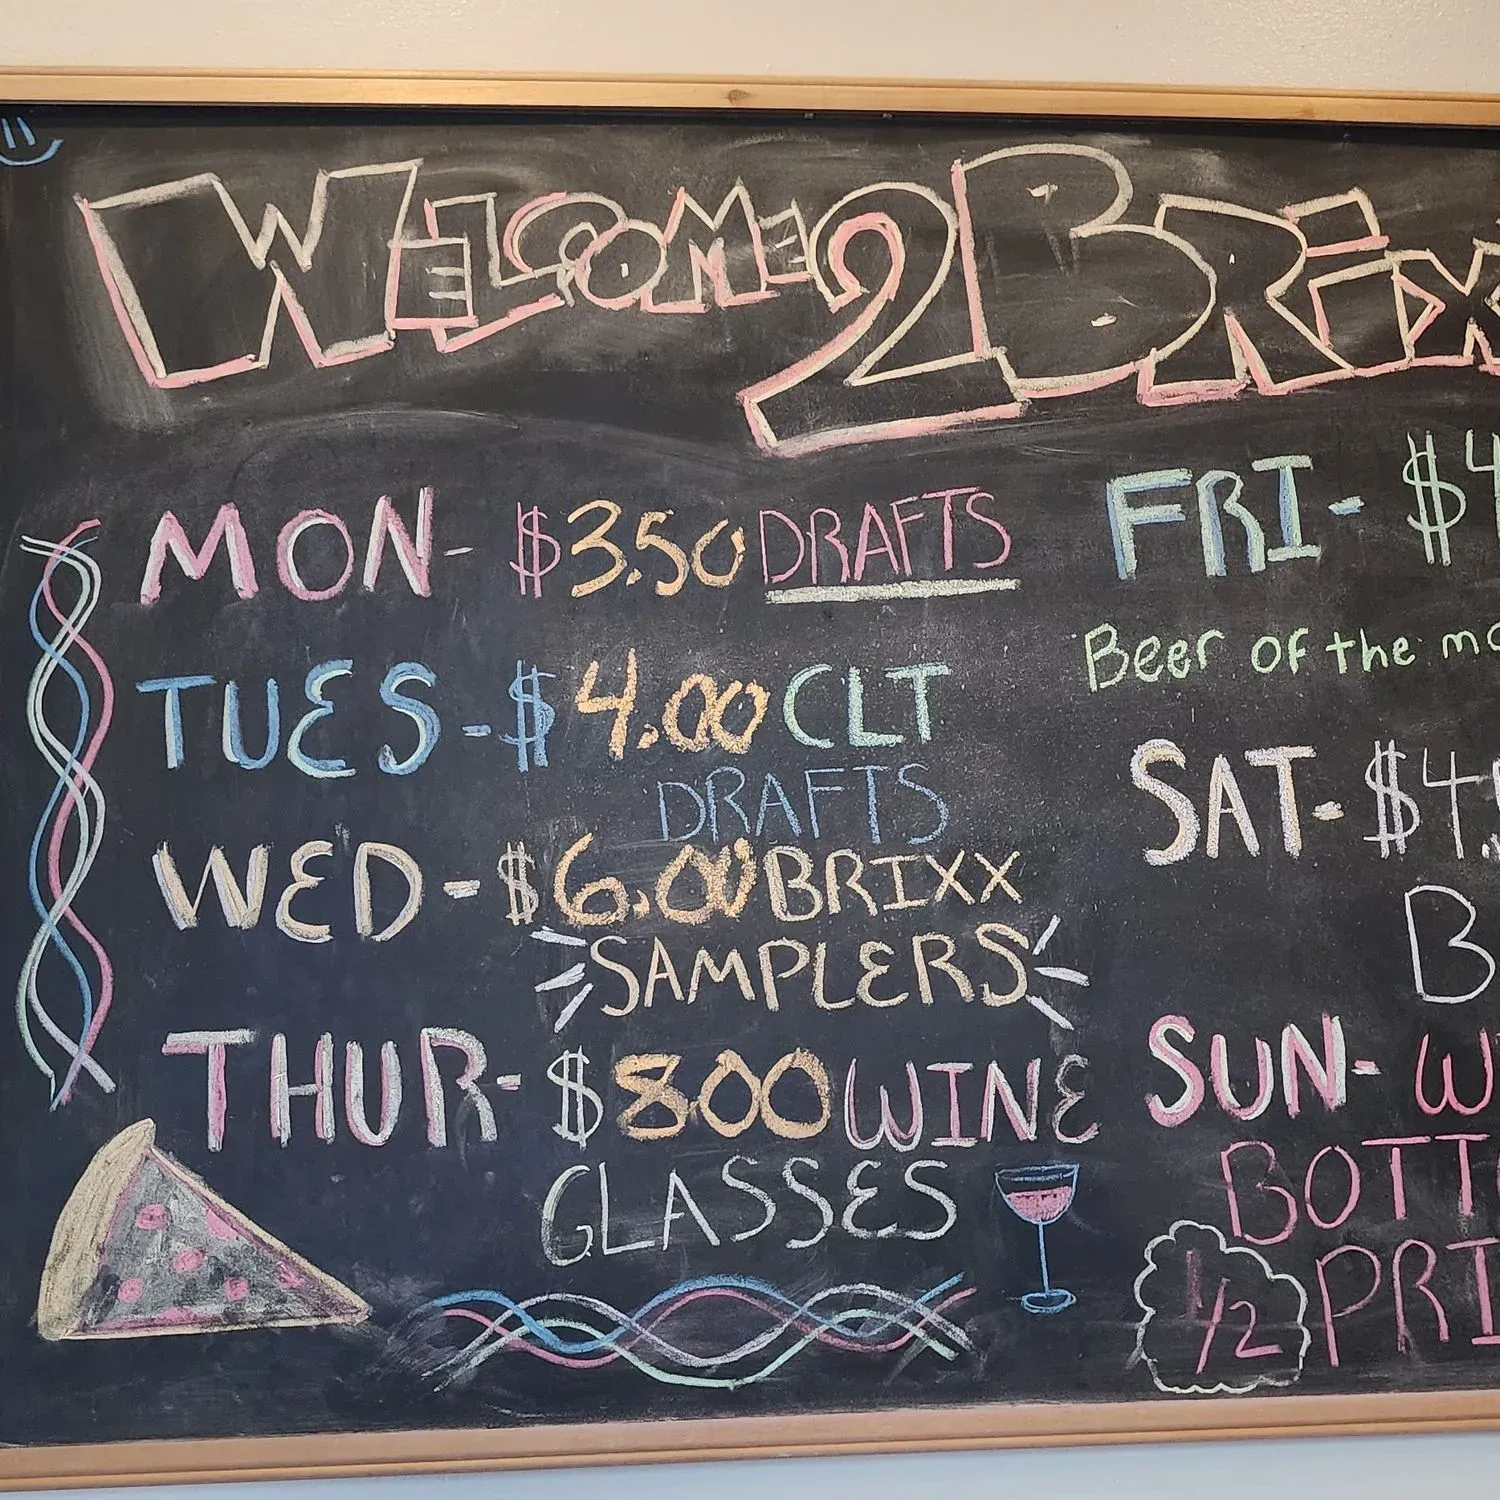 WELCOME 2 BRIXX
MON- $3.50 DRAFTS
TUES-$4.00 CLT
DRAFTS
WED-$6.00 BRIXX
SAMPLERS
THUR-$8.00 WINE
GLASSES
FRI- $4
Beer of the mo
SAT- $4.
B
SUN- W
BOTT
1/2 PRI